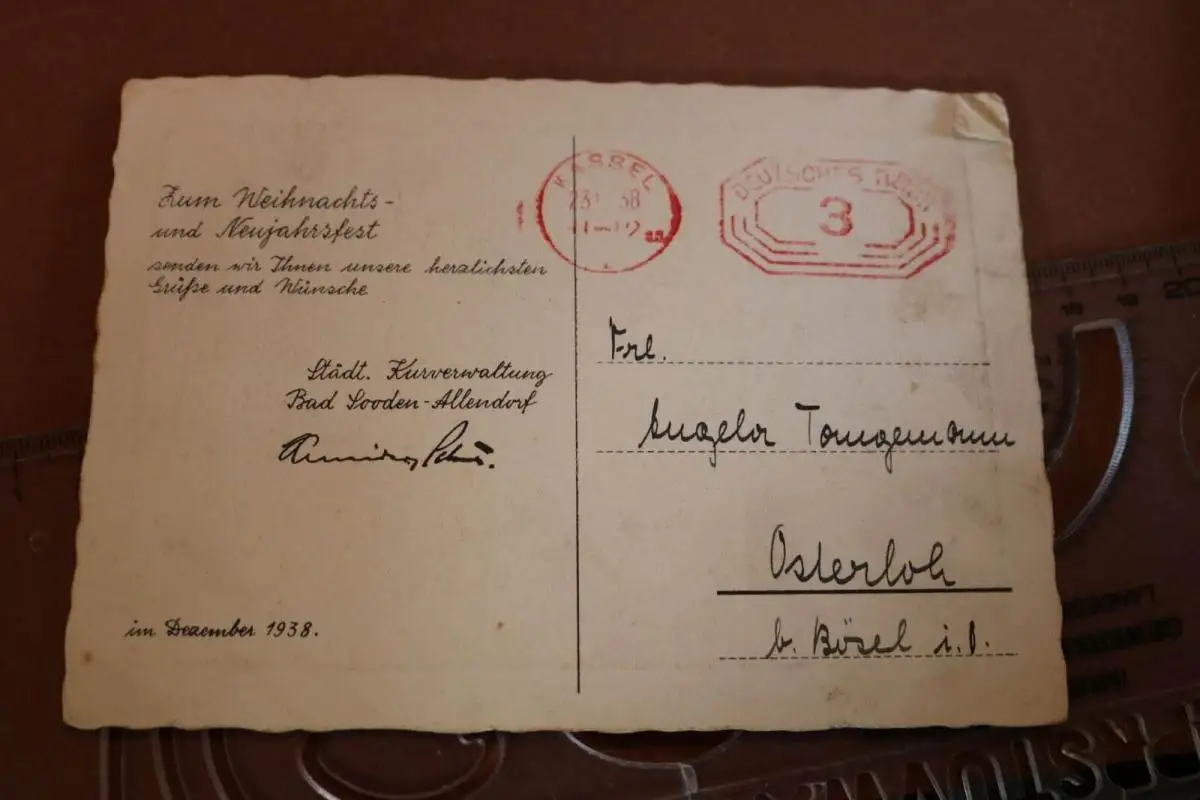 Zum Weihnachts-
und Neujahrsfest
senden wir Ihnen unsere herzlichsten
Grüße und Wünsche
Städt. Kurverwaltung
Bad Sooden-Allendorf
im Dezember 1938.
KASSEL
38
DEUTSCHES REICH
3
Frl.
Angela Tangemann
Osterloh
b. Bösel i. O.
19
20